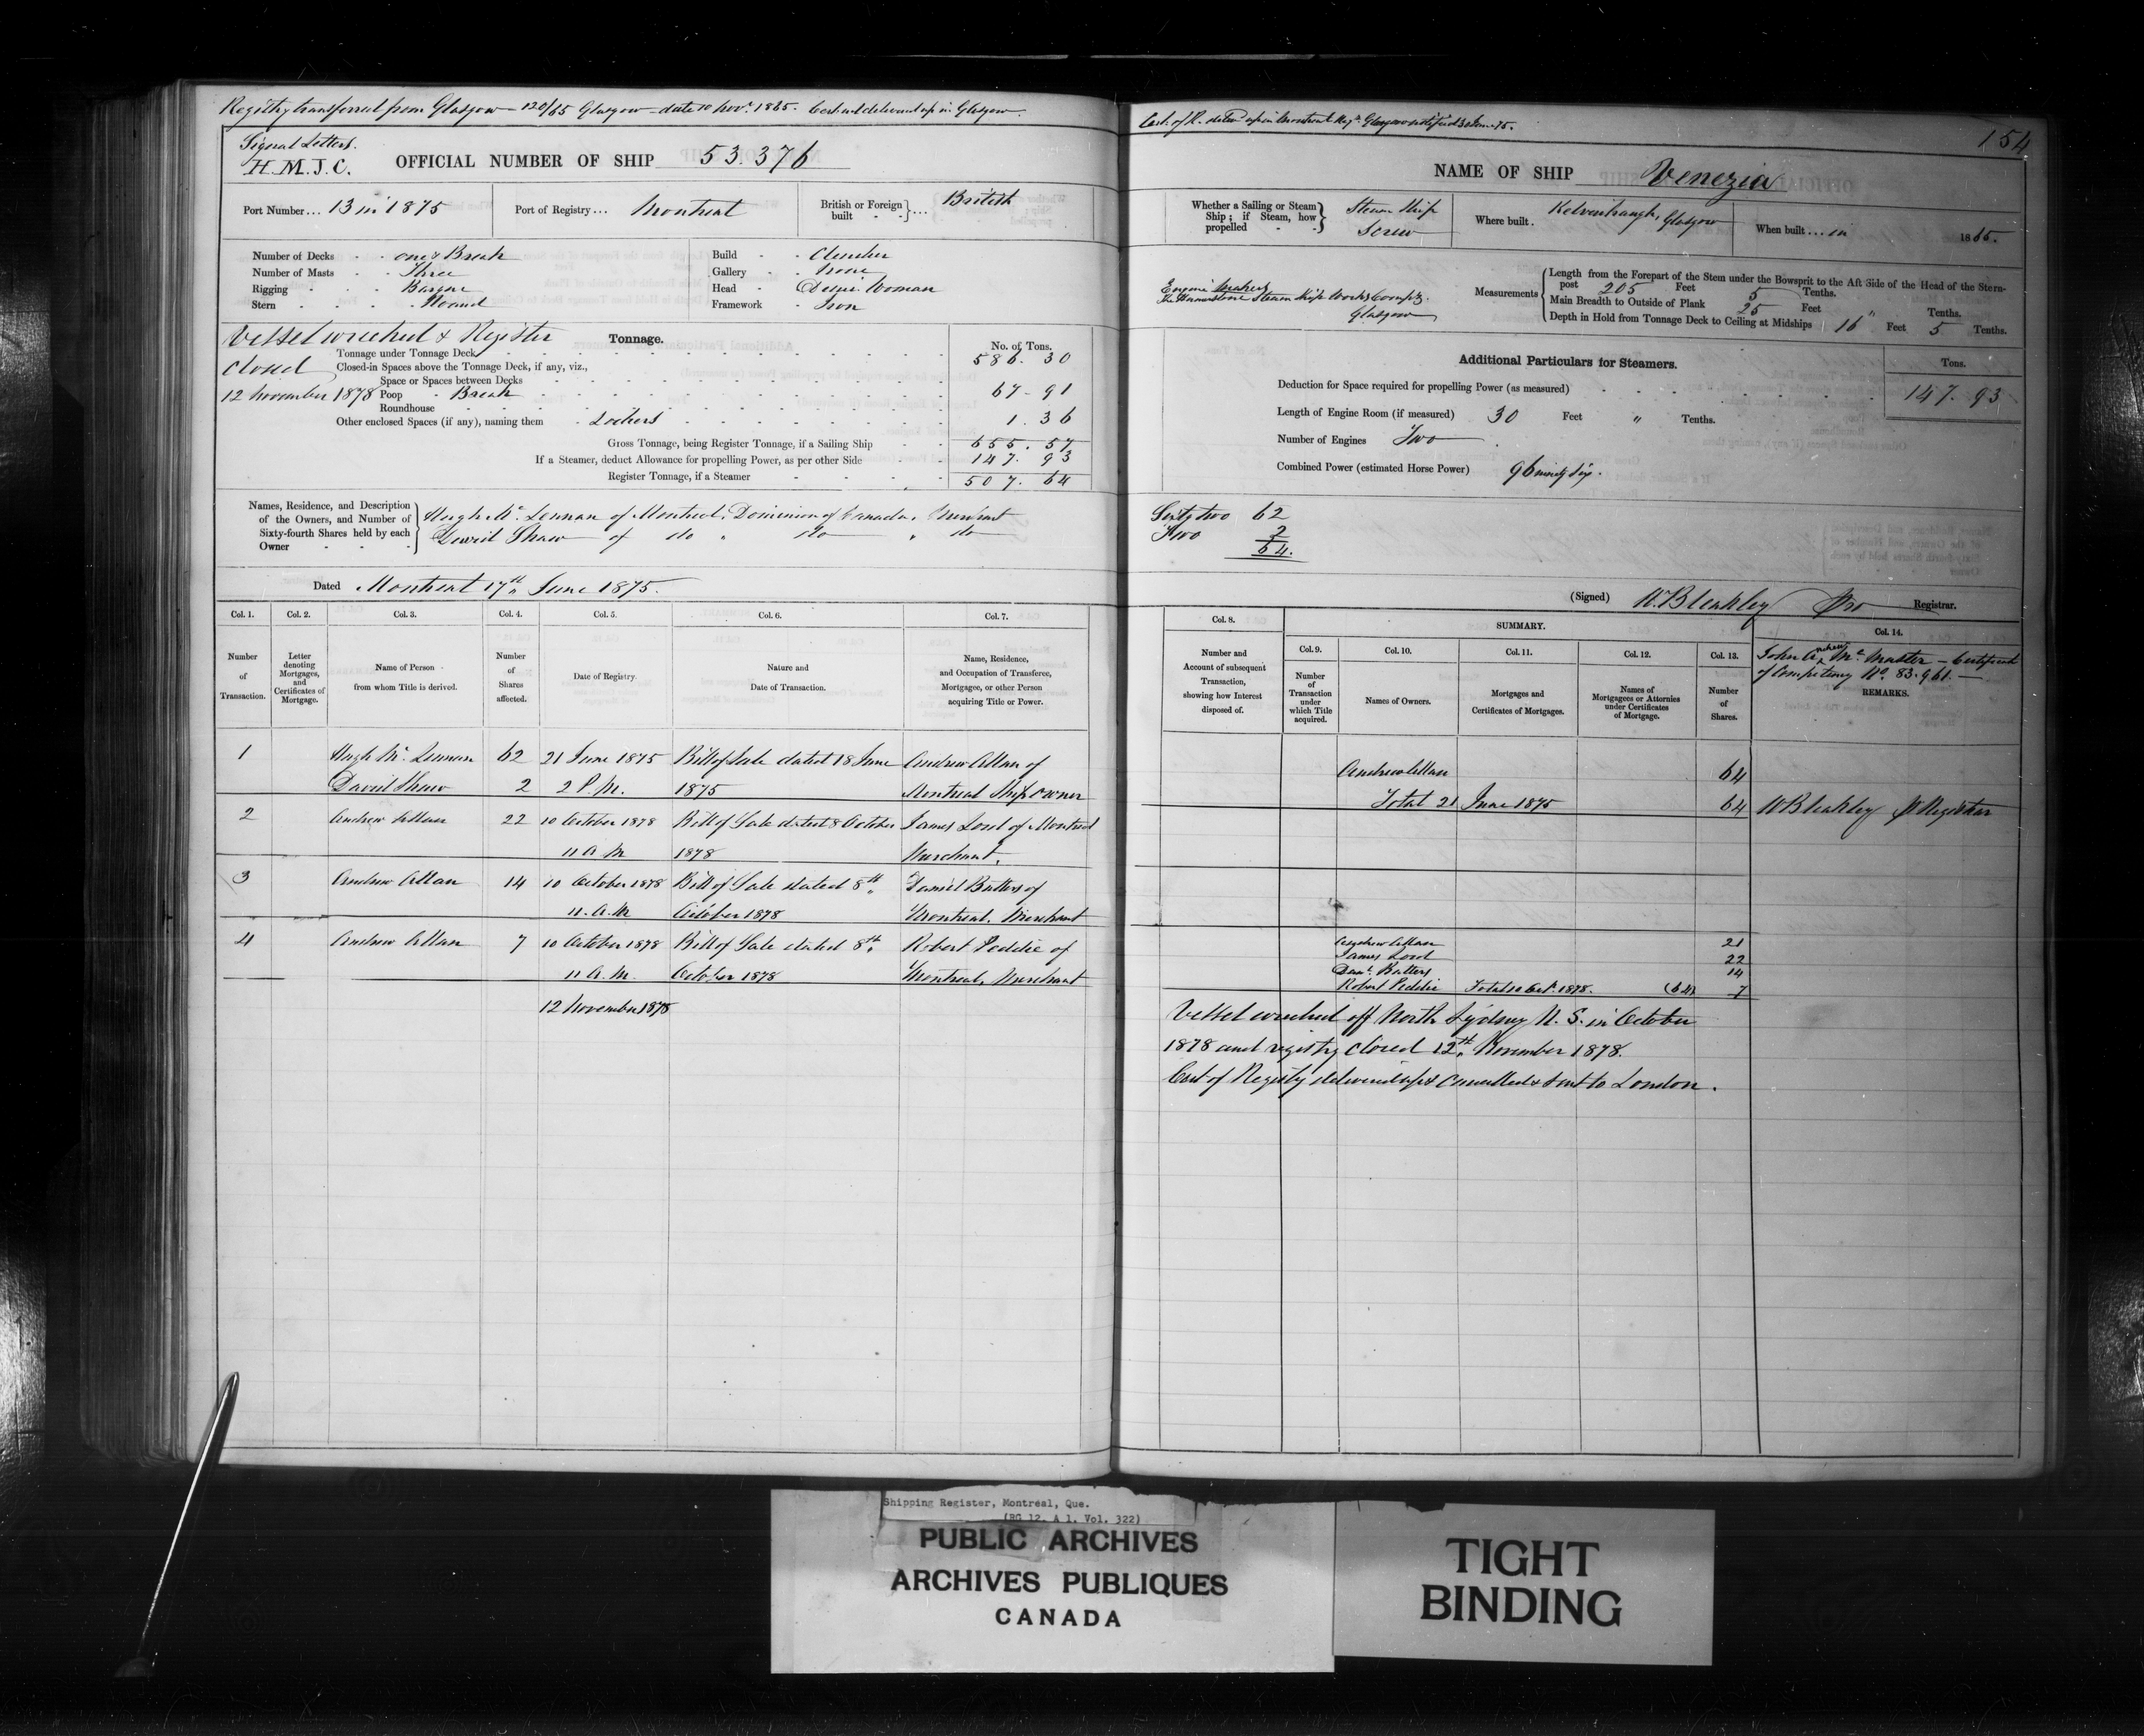 Registry transferred from Glasgow - 120/65 Glasgow - date 10 Novr. 1865. Cert. delivered up in Glasgow.
Signal Letters.
H.M.J.C.
OFFICIAL NUMBER OF SHIP 53.376
Port Number... 13 in 1875
Port of Registry... Montreal
British or Foreign built } ... British
Number of Decks - - one & Break
Number of Masts - - Three
Rigging - - - Barque
Stern - - - - Round
Build - - Clencher
Gallery - - None
Head - - Demi Woman
Framework - Iron
Vessel wrecked & Register
closed
12 November 1878
Tonnage.
No. of Tons.
Tonnage under Tonnage Deck 586. 30
Closed-in Spaces above the Tonnage Deck, if any, viz.,
Space or Spaces between Decks
Poop - Break 67 - 91
Roundhouse
Other enclosed Spaces (if any), naming them - Lockers 1. 36
Gross Tonnage, being Register Tonnage, if a Sailing Ship 655. 57
If a Steamer, deduct Allowance for propelling Power, as per other Side 147. 93
Register Tonnage, if a Steamer 507. 64
Names, Residence, and Description of the Owners, and Number of Sixty-fourth Shares held by each Owner
Hugh Mc. Lennan of Montreal, Dominion of Canada, Merchant
David Shaw of do " do " do
Dated Montreal 17th June 1875.
Col. 1. Col. 2. Col. 3. Col. 4. Col. 5. Col. 6. Col. 7.
Number of Transaction.
Letter denoting Mortgages, and Certificates of Mortgage.
Name of Person from whom Title is derived.
Number of Shares affected.
Date of Registry.
Nature and Date of Transaction.
Name, Residence, and Occupation of Transferee, Mortgagee, or other Person acquiring Title or Power.
1 Hugh Mc. Lennan 62 21 June 1875 Bill of Sale dated 18 June Andrew Allan of
David Shaw 2 2 P.M. 1875 Montreal Ship Owner
2 Andrew Allan 22 10 October 1878 Bill of Sale dated 8 October James Lord of Montreal
11 A M 1878 Merchant.
3 Andrew Allan 14 10 October 1878 Bill of Sale dated 8th Daniel Butters of
11. A.M October 1878 Montreal. Merchant
4 Andrew Allan 7 10 October 1878 Bill of Sale dated 8th Robert Peddie of
11 A.M. October 1878 Montreal, Merchant
12 November 1878
154
NAME OF SHIP Venezia
Whether a Sailing or Steam Ship; if Steam, how propelled } Steam Ship
Screw
Where built. Kelvinhaugh, Glasgow
When built ... in 1865.
Engine Makers
Steam Ship Works Compy.
Glasgow
Measurements
Length from the Forepart of the Stem under the Bowsprit to the Aft Side of the Head of the Stern-
post 205 Feet 5 Tenths.
Main Breadth to Outside of Plank 25 Feet " Tenths.
Depth in Hold from Tonnage Deck to Ceiling at Midships 16 Feet 5 Tenths.
Additional Particulars for Steamers.
Tons.
Deduction for Space required for propelling Power (as measured) 147. 93
Length of Engine Room (if measured) 30 Feet " Tenths.
Number of Engines Two
Combined Power (estimated Horse Power) 96 ninety six.
Sixty two 62
Two 2
64.
(Signed) W. Bleakley Pro Registrar.
Col. 8. SUMMARY. Col. 14.
Col. 9. Col. 10. Col. 11. Col. 12. Col. 13.
Number and Account of subsequent Transaction, showing how Interest disposed of.
Number of Transaction under which Title acquired.
Names of Owners.
Mortgages and Certificates of Mortgages.
Names of Mortgagees or Attornies under Certificates of Mortgage.
Number of Shares.
John A Mc. Master - Certificate
of Competency No. 83.961. -
REMARKS.
Andrew Allan 64
Total 21 June 1875 64 W Bleakley p Registrar
Andrew Allan 21
James Lord 22
Danl. Butters 14
Robert Peddie Total 10 Oct. 1878. (64) 7
Vessel wrecked off North Sydney N. S. in October
1878 and registry closed 12th November 1878.
Cert of Registry delivered up & cancelled & sent to London.
Shipping Register, Montréal, Que.
(RG 12, A 1, Vol. 322)
PUBLIC ARCHIVES
ARCHIVES PUBLIQUES
CANADA
TIGHT
BINDING